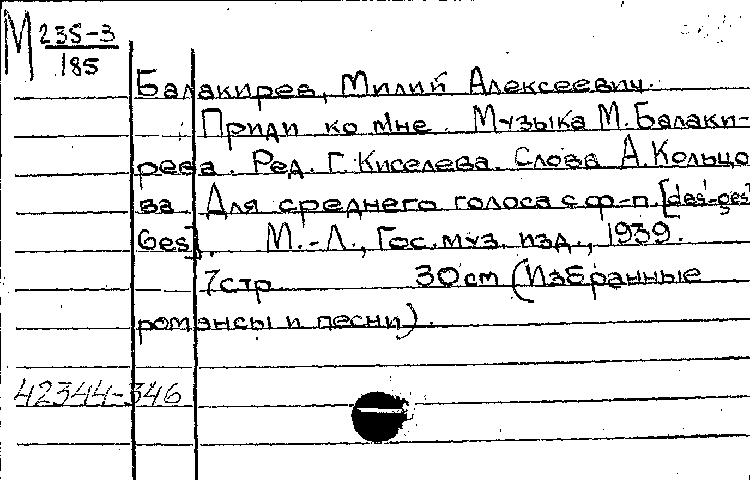 М 235-3
185
Балакирев, Милий Алексеевич.
Приди ко мне. Музыка М. Балаки-
рева. Ред. Г. Киселева. Слова А. Кольцо
ва Для среднего голоса с ф-п. [des'-ges'
Ges]. М.-Л., Гос. муз. изд., 1939.
7стр 30 см (Избранные
романсы и песни).
42344-346